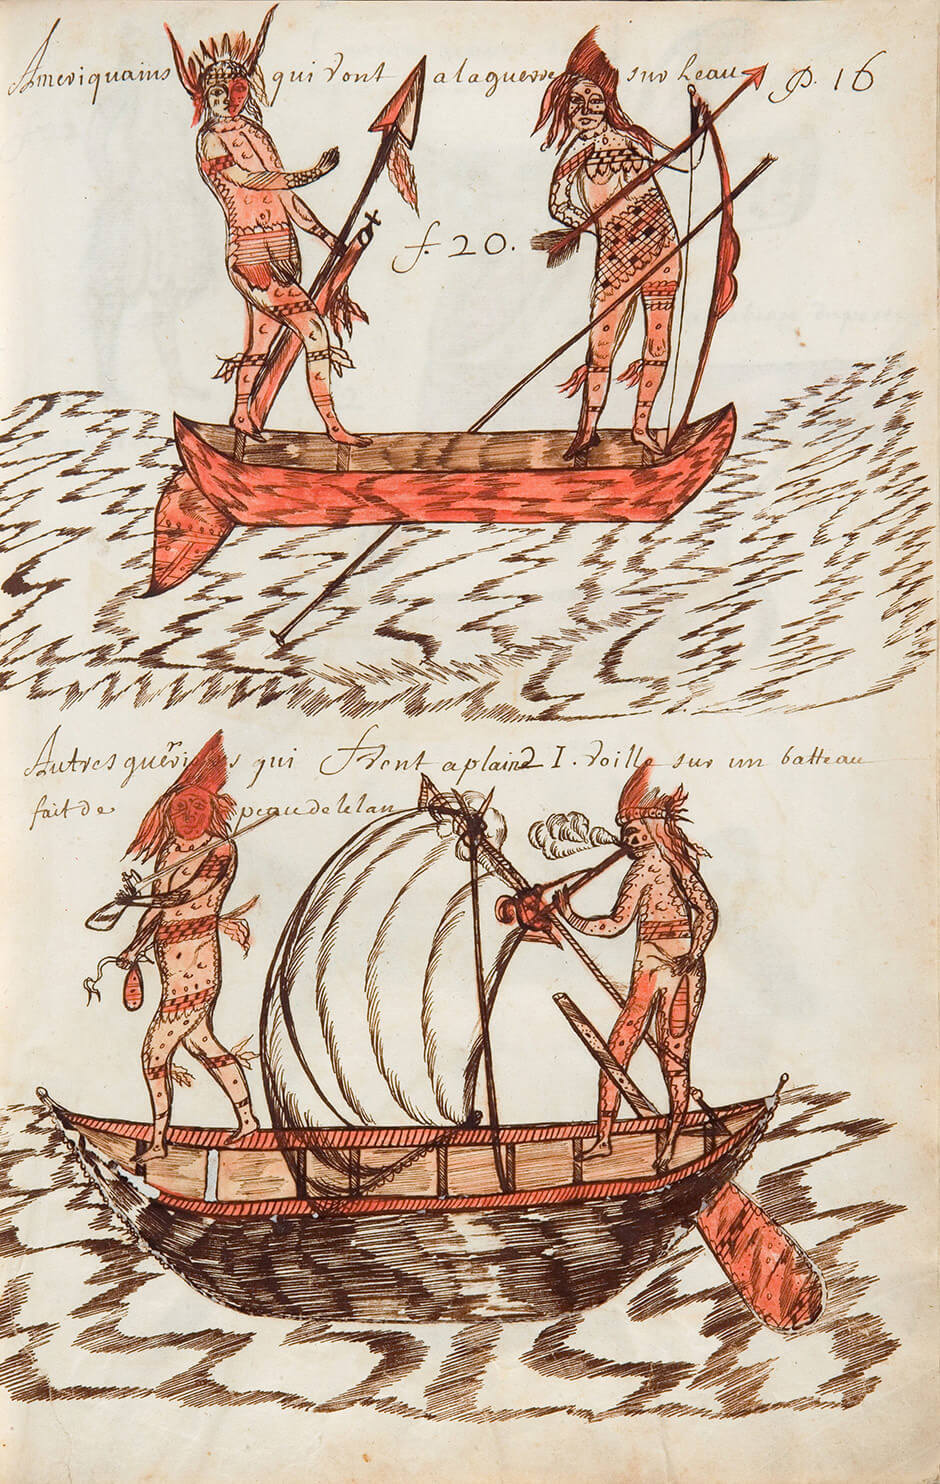 Ameriquains qui vont a la guerre sur leau P. 16
f. 20.
Autres guerriers qui vont a plaine I. voille sur un batteau
fait de peau de lelan